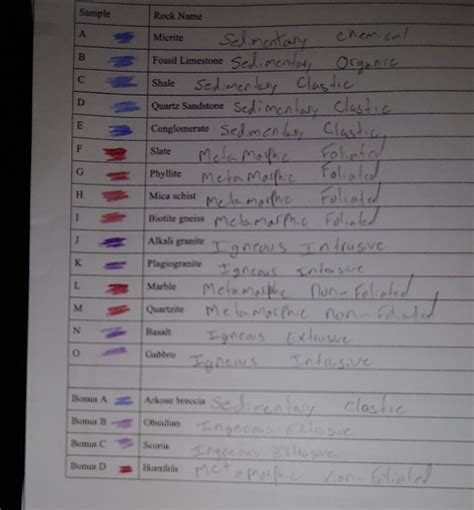 Sample Rock Name
A Micrite Sedimentary chemical
B Fossil Limestone Sedimentary Organic
C Shale Sedimentary Clastic
D Quartz Sandstone Sedimentary Clastic
E Conglomerate Sedimentary Clastic
F Slate MetaMorphic Foliated
G Phyllite MetaMorphic Foliated
H Mica schist Metamorphic Foliated
I Biotite gneiss Metamorphic Foliated
J Alkali granite Igneous Intrusive
K Plagiogranite Igneous Intrusive
L Marble Metamorphic non-Foliated
M Quartzite Metamorphic non-Foliated
N Basalt Igneous Extrusive
O Gabbro Igneous Intrusive
Bonus A Arkose breccia Sedimentary Clastic
Bonus B Obsidian Ingneous Extrusive
Bonus C Scoria Ingneous Extrusive
Bonus D Hornfels Metamorphic non-Foliated